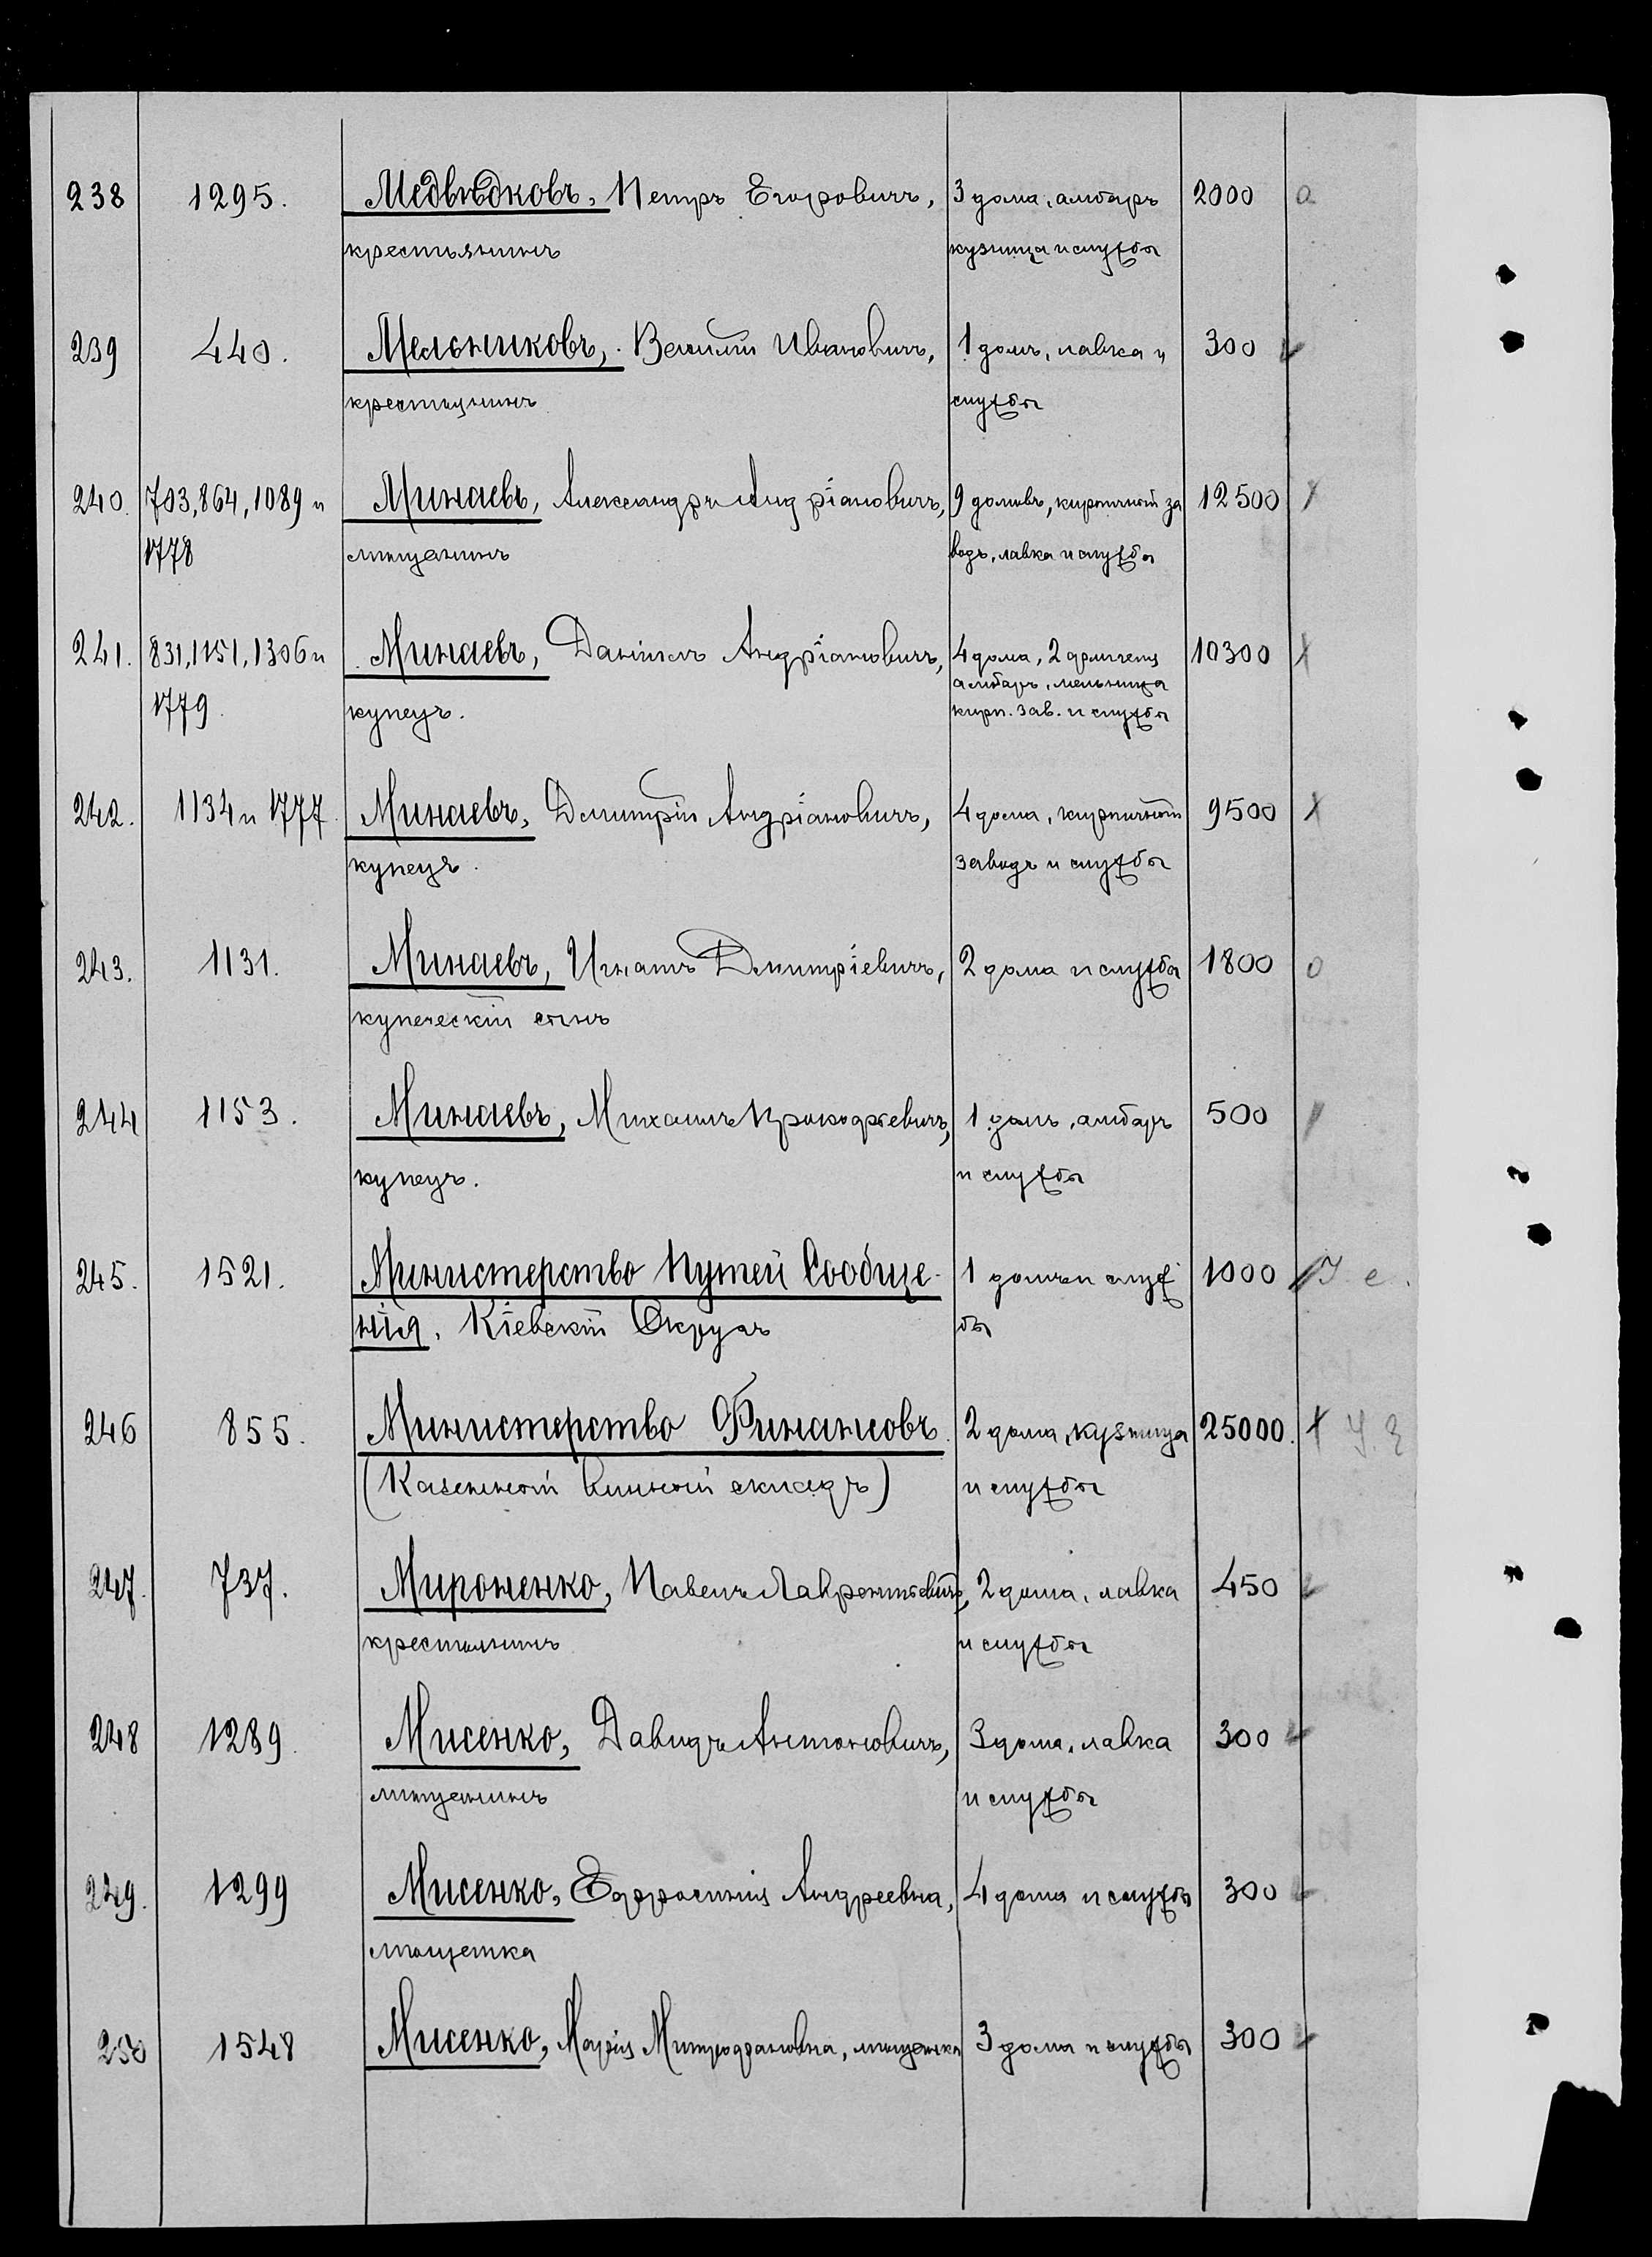 238 1295. Медвѣдковъ, Петръ Егоровичъ, 3 дома, амбаръ 2000 о
крестьянинъ кузница и службы
239 440. Мельниковъ, Василій Ивановичъ, 1 домъ, лавка и 300
крестьянинъ службы
240. 703, 864, 1089 и Минаевъ, Александръ Андріановичъ, 9 домовъ, кирпичный за 12500
1778 мѣщанинъ водъ, лавка и службы
241. 831, 1151, 1306 и Минаевъ, Даніилъ Андріановичъ, 4 дома, 2 10300
амбаръ, мельница
1779 купецъ. кирп. зав. и службы
242. 1134 и 1777 Минаевъ, Дмитрій Андріановичъ, 4 дома, кирпичный 9500
купецъ. заводъ и службы
243. 1131. Минаевъ, Игнатъ Дмитріевичъ, 2 дома и службы 1800 о
купеческій сынъ
244 1153. Минаевъ, Михаилъ Прокофьевичъ, 1 домъ, амбаръ 500
купецъ. и службы
245. 1521. Министерство Путей Сообще- 1 домъ и служ 1000
нія. Кіевскій Округъ бы
246 855. Министерство Финансовъ 2 дома, кузница 25000.
(Казенный винный складъ) и службы
247. 737. Мироненко, Павелъ Лаврентьевичъ, 2 дома, лавка 450
крестьянинъ и службы
248 1289. Мисенко, Давидъ Антоновичъ, 3 дома, лавка 300
мѣщанинъ и службы
249. 1299 Мисенко, Ефросинія Андреевна, 4 дома и службы 300
мѣщанка
250 1548 Мисенко, Марія Митрофановна, мѣщанка 3 дома и службы 300